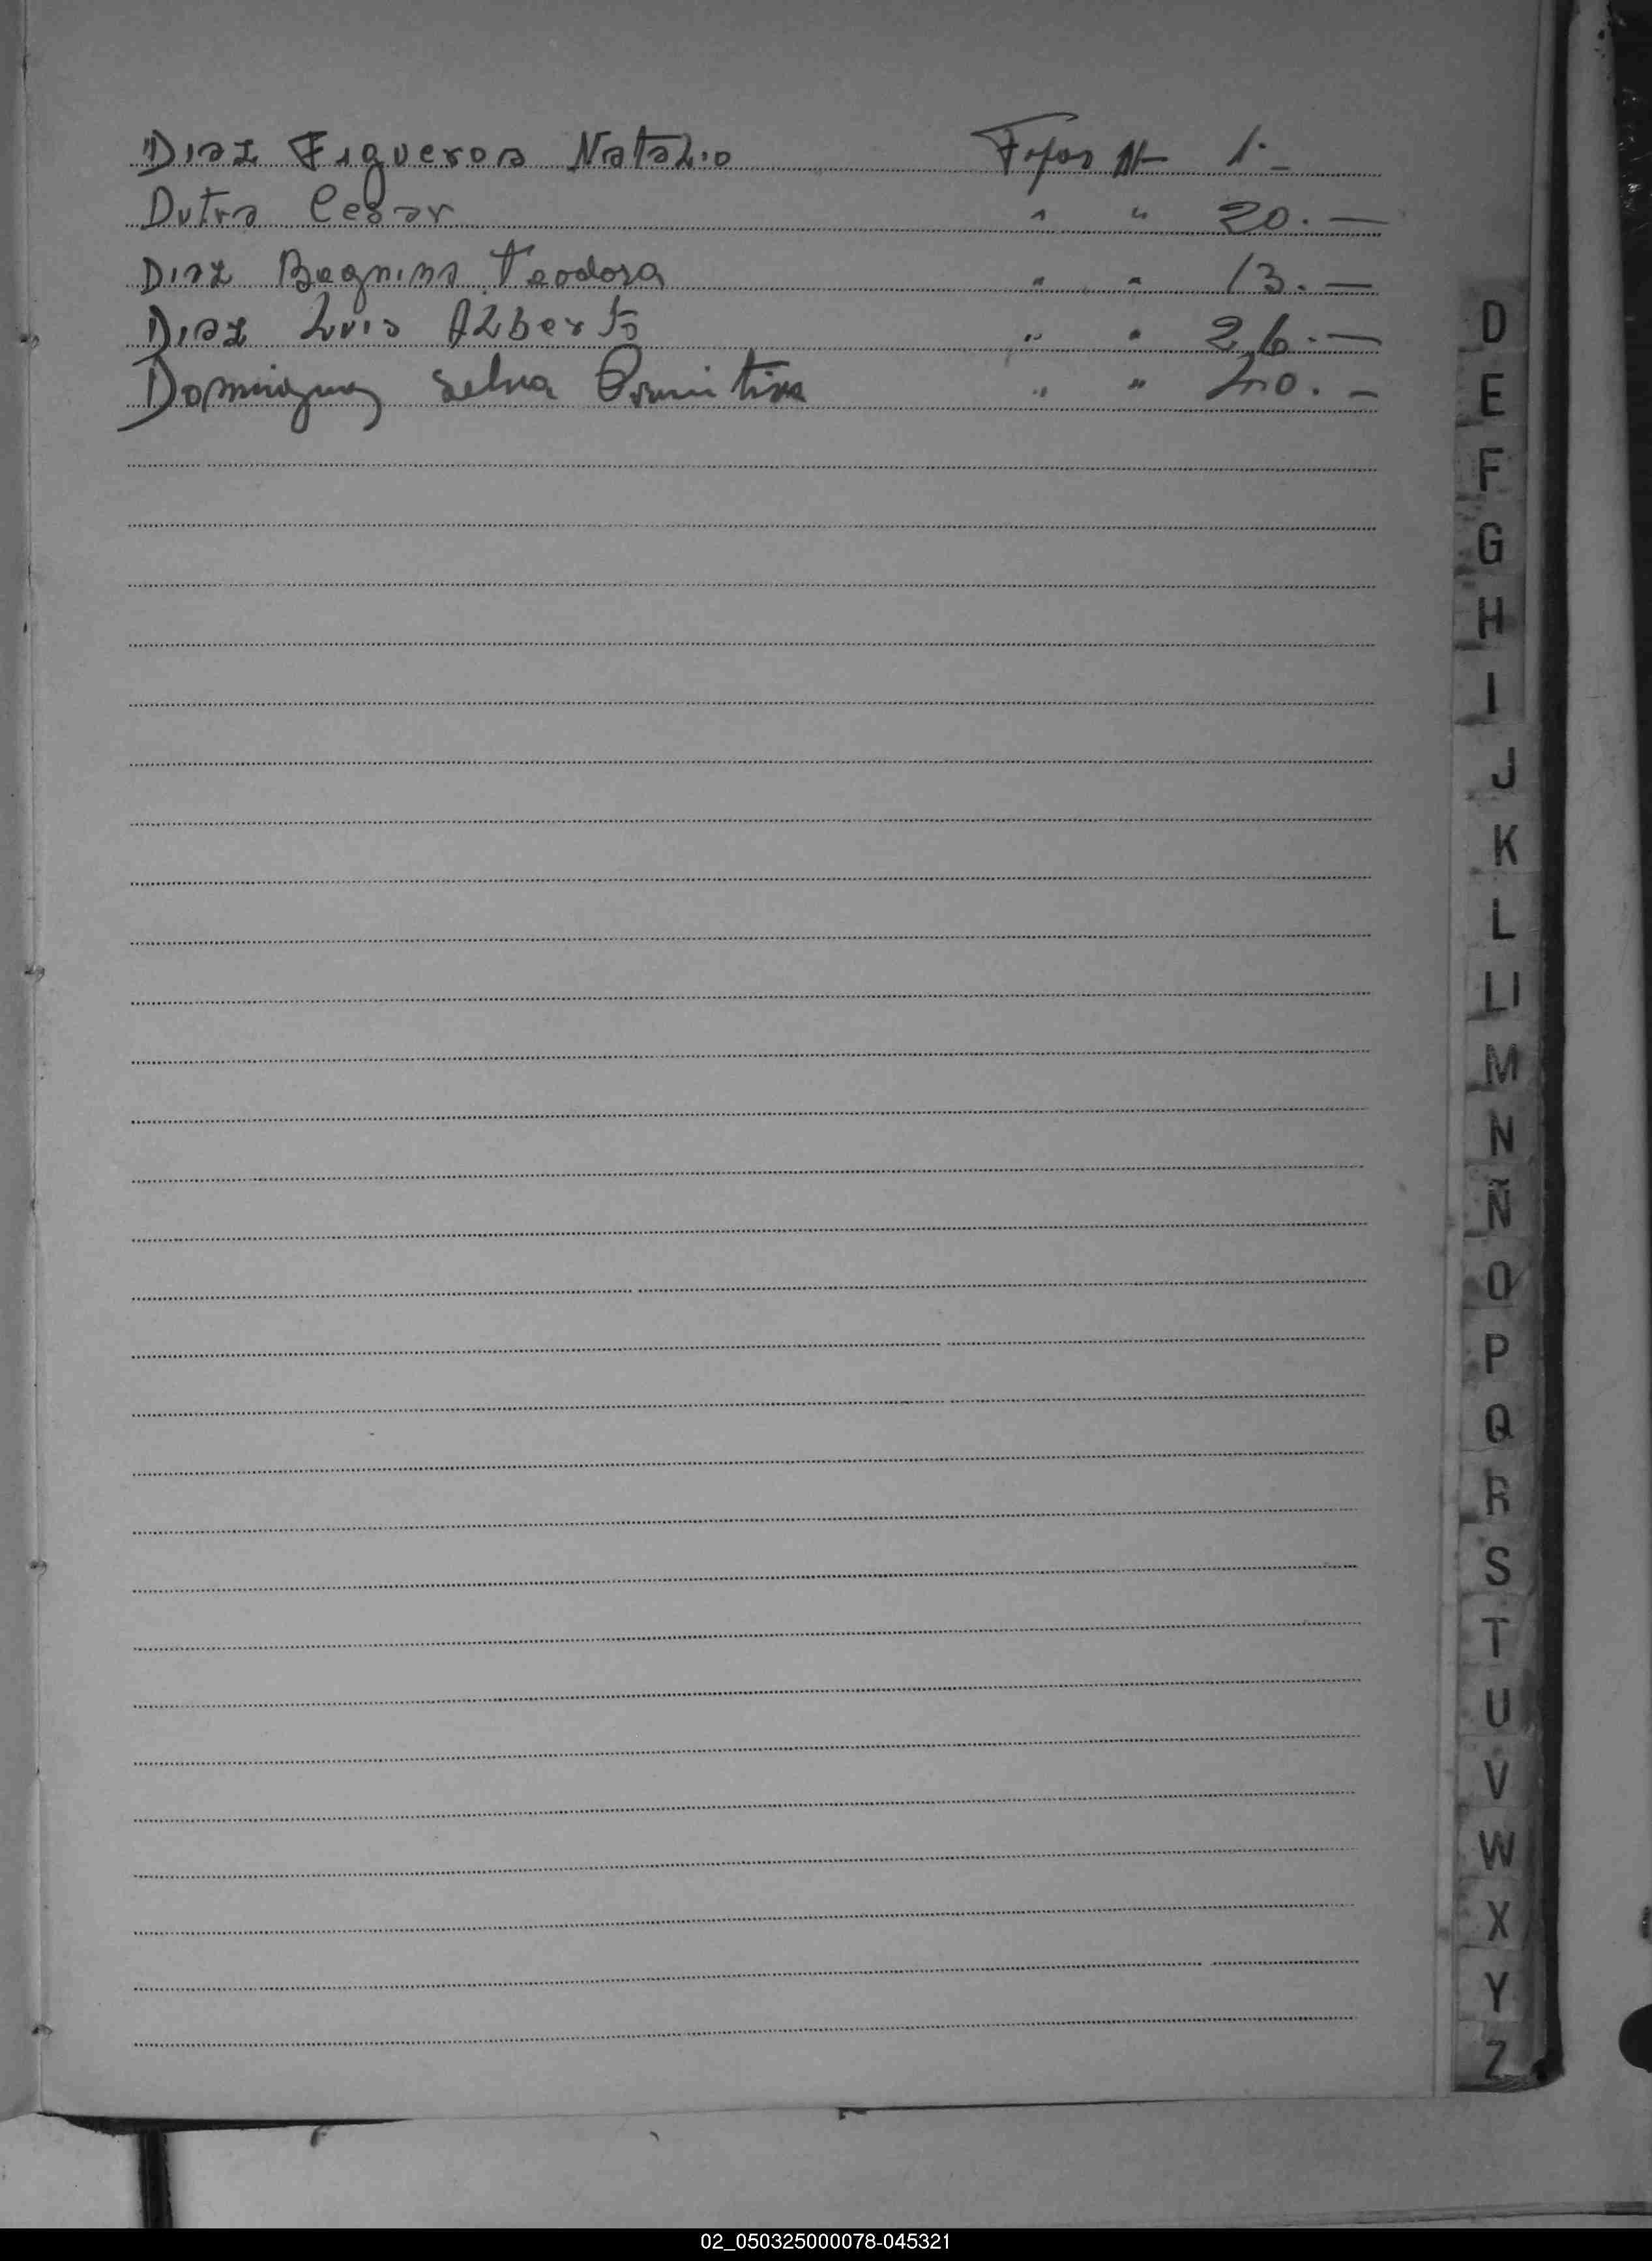 Diaz Figueroa Natalio Fojas Nº 1.-
Dutra Cesar " " 20.-
Diaz Begnina Teodora " " 13.-
Diaz Luis Alberto " " 26.-
Dominguez Selva Primitiva " " 40.-
D
E
F
G
H
I
J
K
L
Ll
M
N
Ñ
O
P
Q
R
S
T
U
V
W
X
Y
Z
02_050325000078-045321